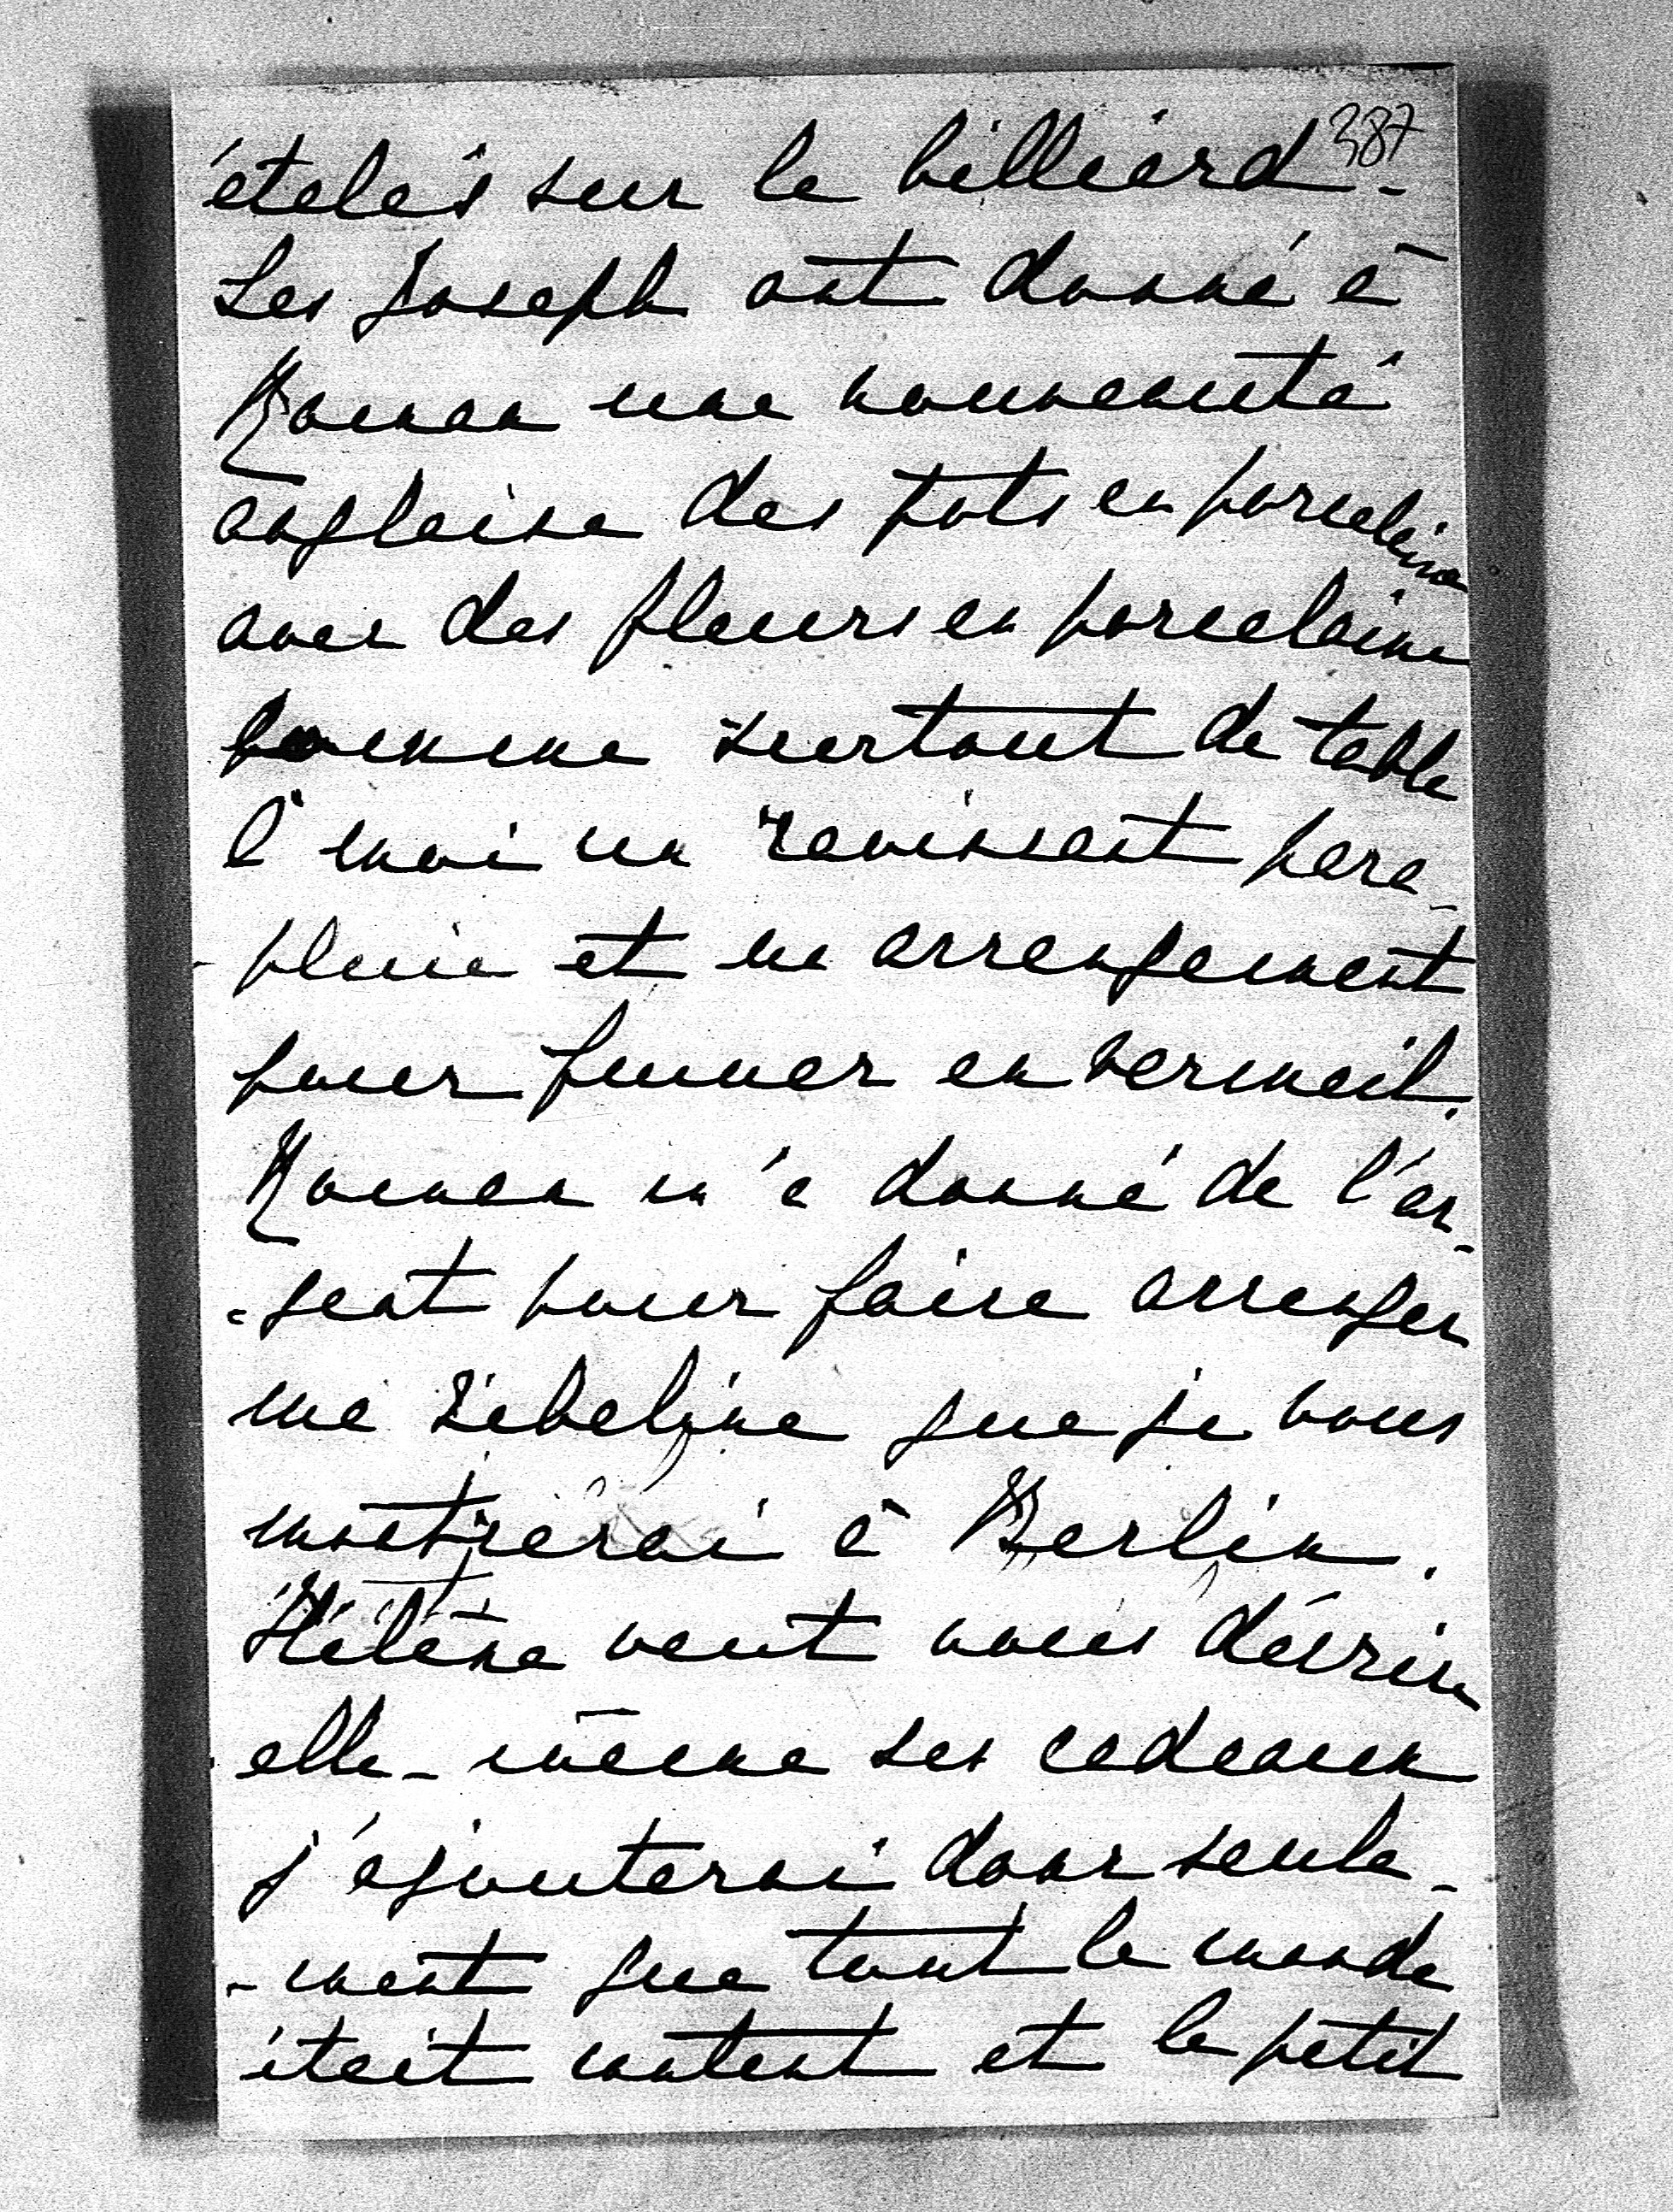 387
étalés sur le billiard -
Les Joseph ont donné à
Roman une nouveauté
anglaise des pots en porcelaine
avec des fleurs en porcelaine
comme surtout de table
à moi un ravissant para-
-pluie et un arrangement
pour fumer en vermeil.
Roman m'a donné de l'ar-
-gent pour faire arranger
ma zibeline que je vous
montrerai à Berlin.
Hélène veut vous décrire
elle-même ses cadeaux
j'ajouterai donc seule-
-ment que tout le monde
était content et le petit